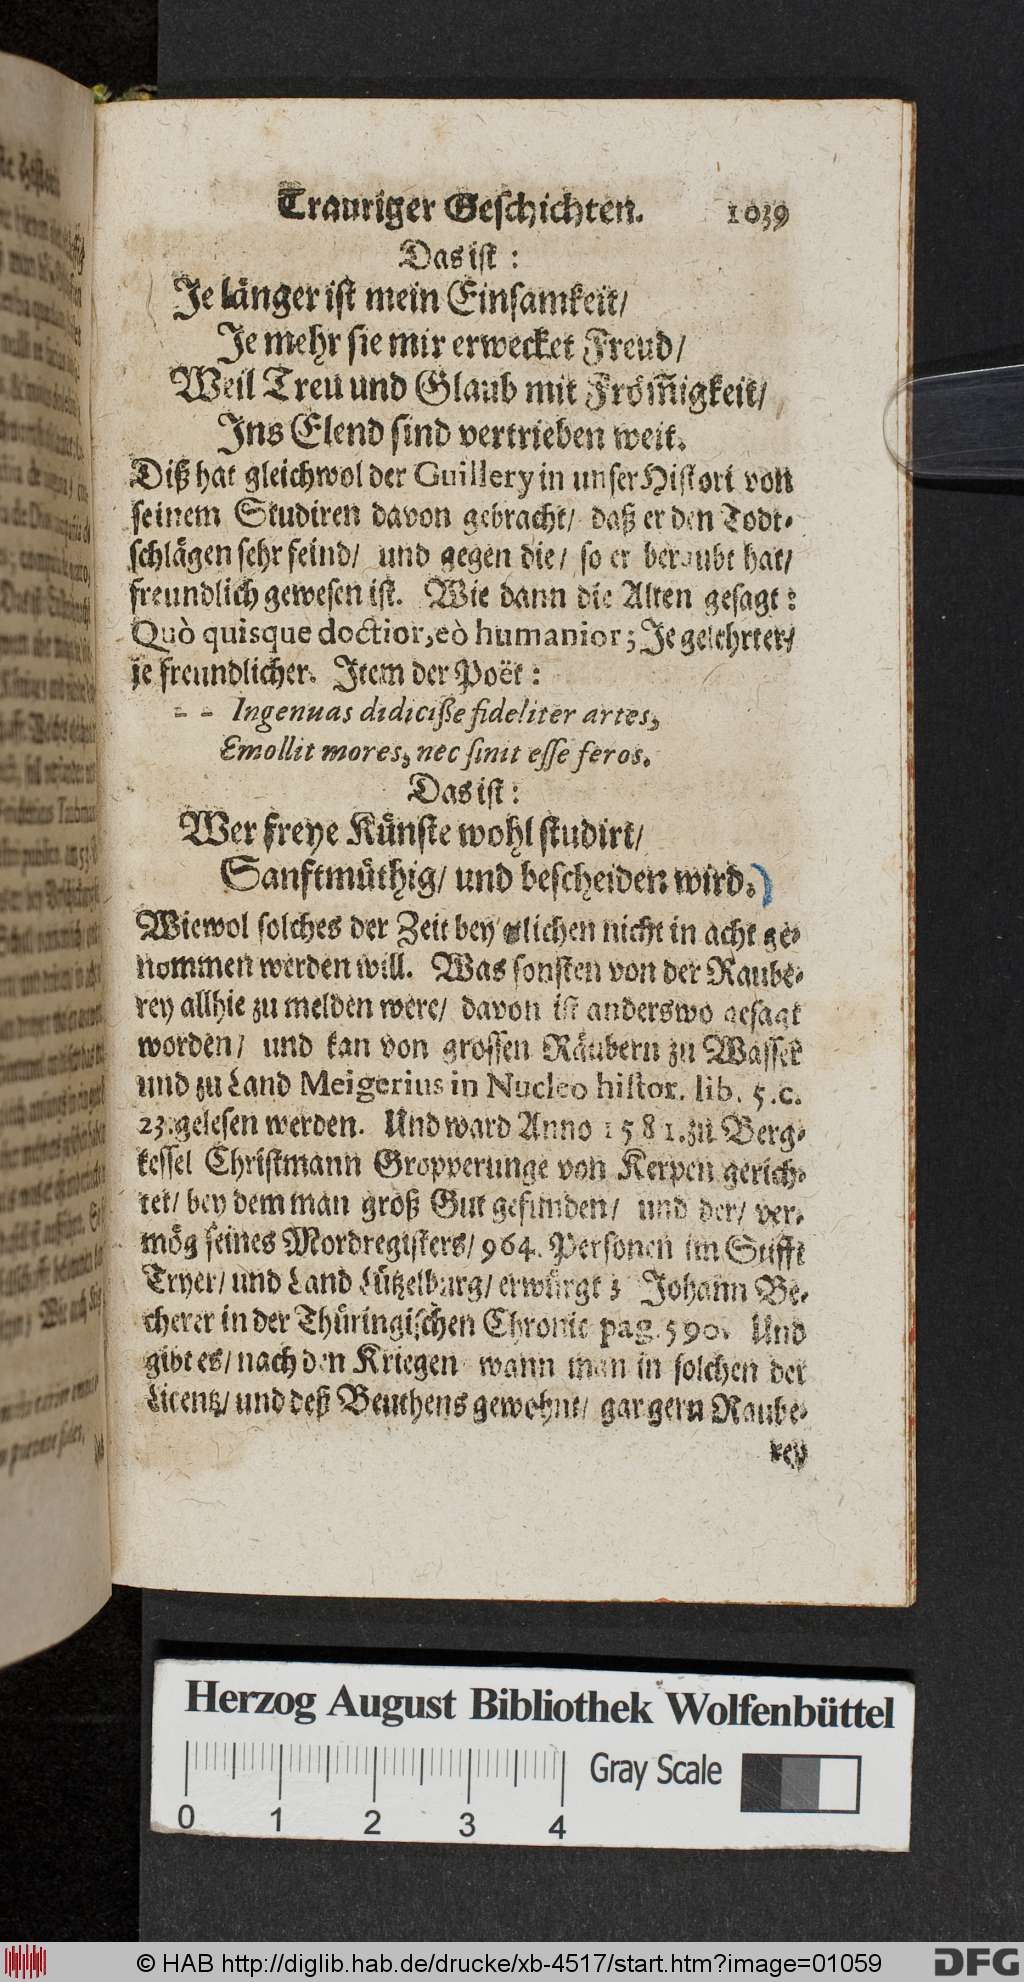 Trauriger Geschichten. 1039
Das ist:
Je länger ist mein Einsamkeit/
Je mehr sie mir erwecket Freud/
Weil Treu und Glaub mit From̃igkeit/
Ins Elend sind vertrieben weit.
Diß hat gleichwol der Guillery in unser Histori von
seinem Studiren davon gebracht/ daß er den Todt-
schlägen sehr feind/ und gegen die/ so er beraubt hat/
freundlich gewesen ist. Wie dann die Alten gesagt:
Quò quisque doctior, eò humanior; Je gelehrter/
je freundlicher. Item der Poët:
- - Ingenuas didiciße fideliter artes,
Emollit mores, nec sinit esse feros.
Das ist:
Wer freye Künste wohl studirt/
Sanfftmüthig/ und bescheiden wird.)
Wiewol solches der Zeit bey etlichen nicht in acht ge-
nommen werden will. Was sonsten von der Raube-
rey allhie zu melden were/ davon ist anderswo gesagt
worden/ und kan von grossen Räubern zu Wasser
und zu Land Meigerius in Nucleo histor. lib. 5. c.
23. gelesen werden. Und ward Anno 1581. zu Berg-
kessel Christmann Gropperunge von Kerpen gerich-
tet/ bey dem man groß Gut gefunden/ und der/ ver-
mög seines Mordregisters/ 964. Personen im Stifft
Tryer/ und Land Lützelburg/ erwürgt; Johann Be-
cherer in der Thüringischen Chronic pag. 590. Und
gibt es/ nach den Kriegen wann man in solchen der
Licentz/ und deß Beuthens gewohnt/ gar gern Raube-
rey
Herzog August Bibliothek Wolfenbüttel
0 1 2 3 4 Gray Scale
© HAB http://diglib.hab.de/drucke/xb-4517/start.htm?image=01059 DFG